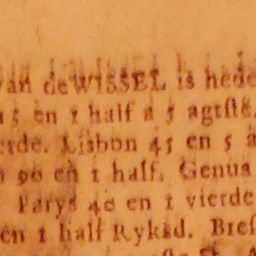 van de WISSEL is hede
5 en 1 half a 5 agtste.
erde. Lisbon 45 en 5 a
90 en 1 half. Genua
Parys 40 en 1 vierde
en 1 half Ryksd. Bres